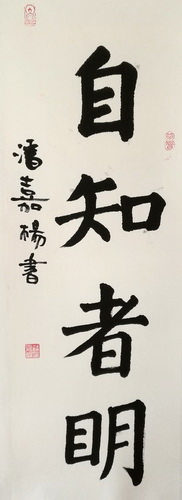 自知者明
潘嘉楊書